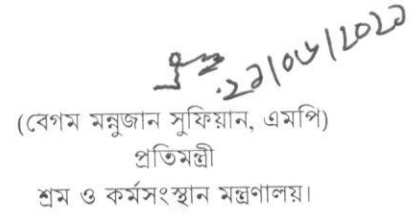 (বেগম মন্নুজান সুফিয়ান, এমপি)
প্রতিমন্ত্রী
শ্রম ও কর্মসংস্থান মন্ত্রণালয়।